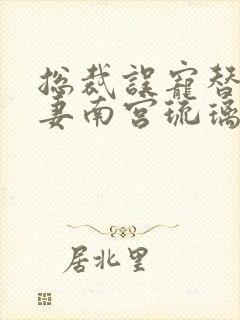 总裁误宠替
妻南宫琉璃
居北里